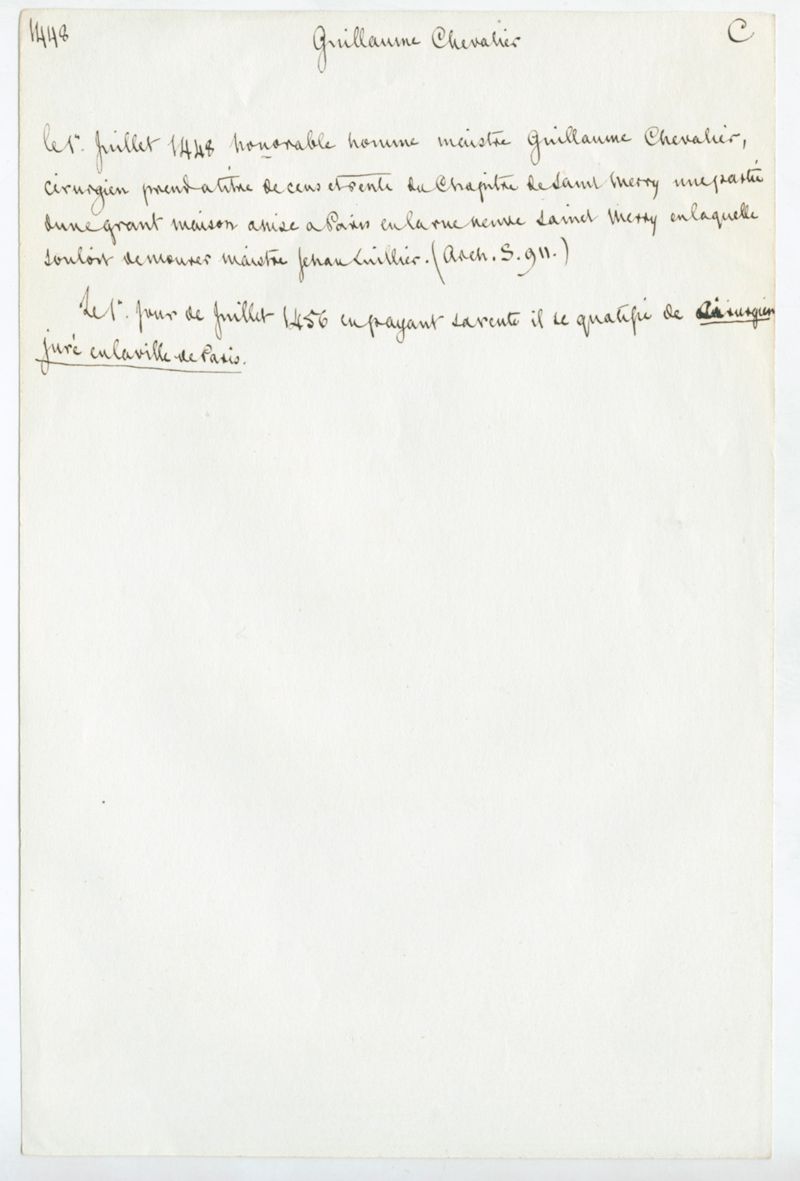 1448 Guillaume Chevalier C
le 1er. Juillet 1448 honorable homme maistre Guillaume Chevalier,
cirurgien prend a titre de cens et rente du Chapitre de Saint Merry une partie
dune grant maison assise a Paris en la rue neuve Sainct Merry en laquelle
souloit demourer maistre Jehan Luillier. (Arch. S. 911.)
Le 1er. jour de Juillet 1456 en payant sa rente il se qualifie de cirurgien
juré en la ville de Paris.